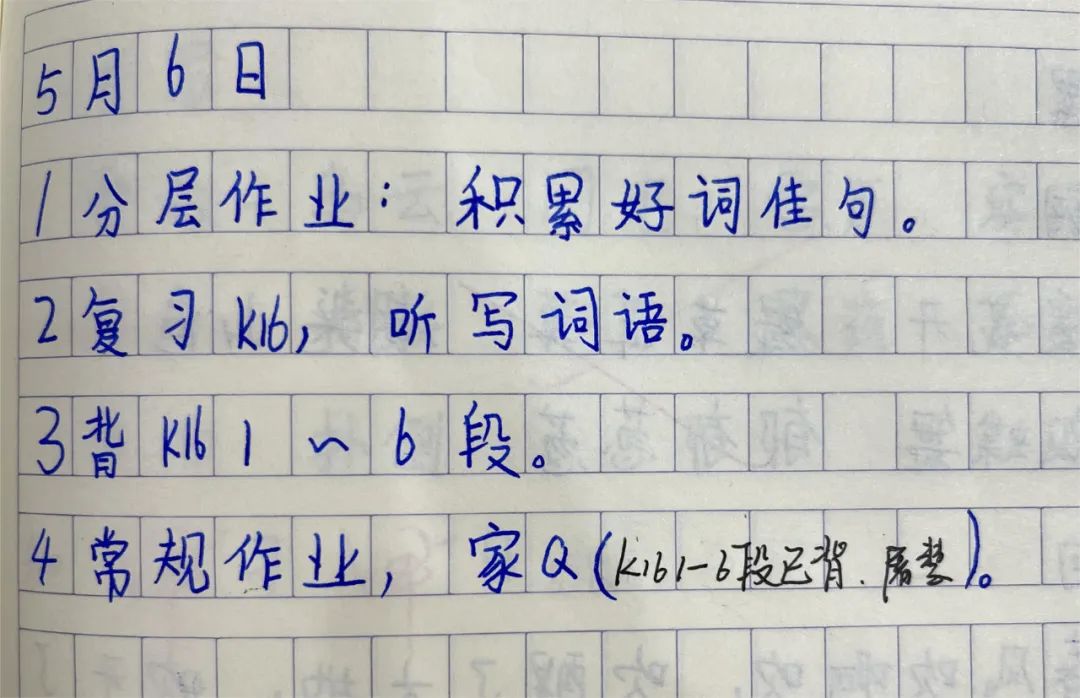 5月6日
1分层作业：积累好词佳句。
2复习K16，听写词语。
3背K16 1~6段。
4常规作业，家Q(K16 1-6段已背.)。